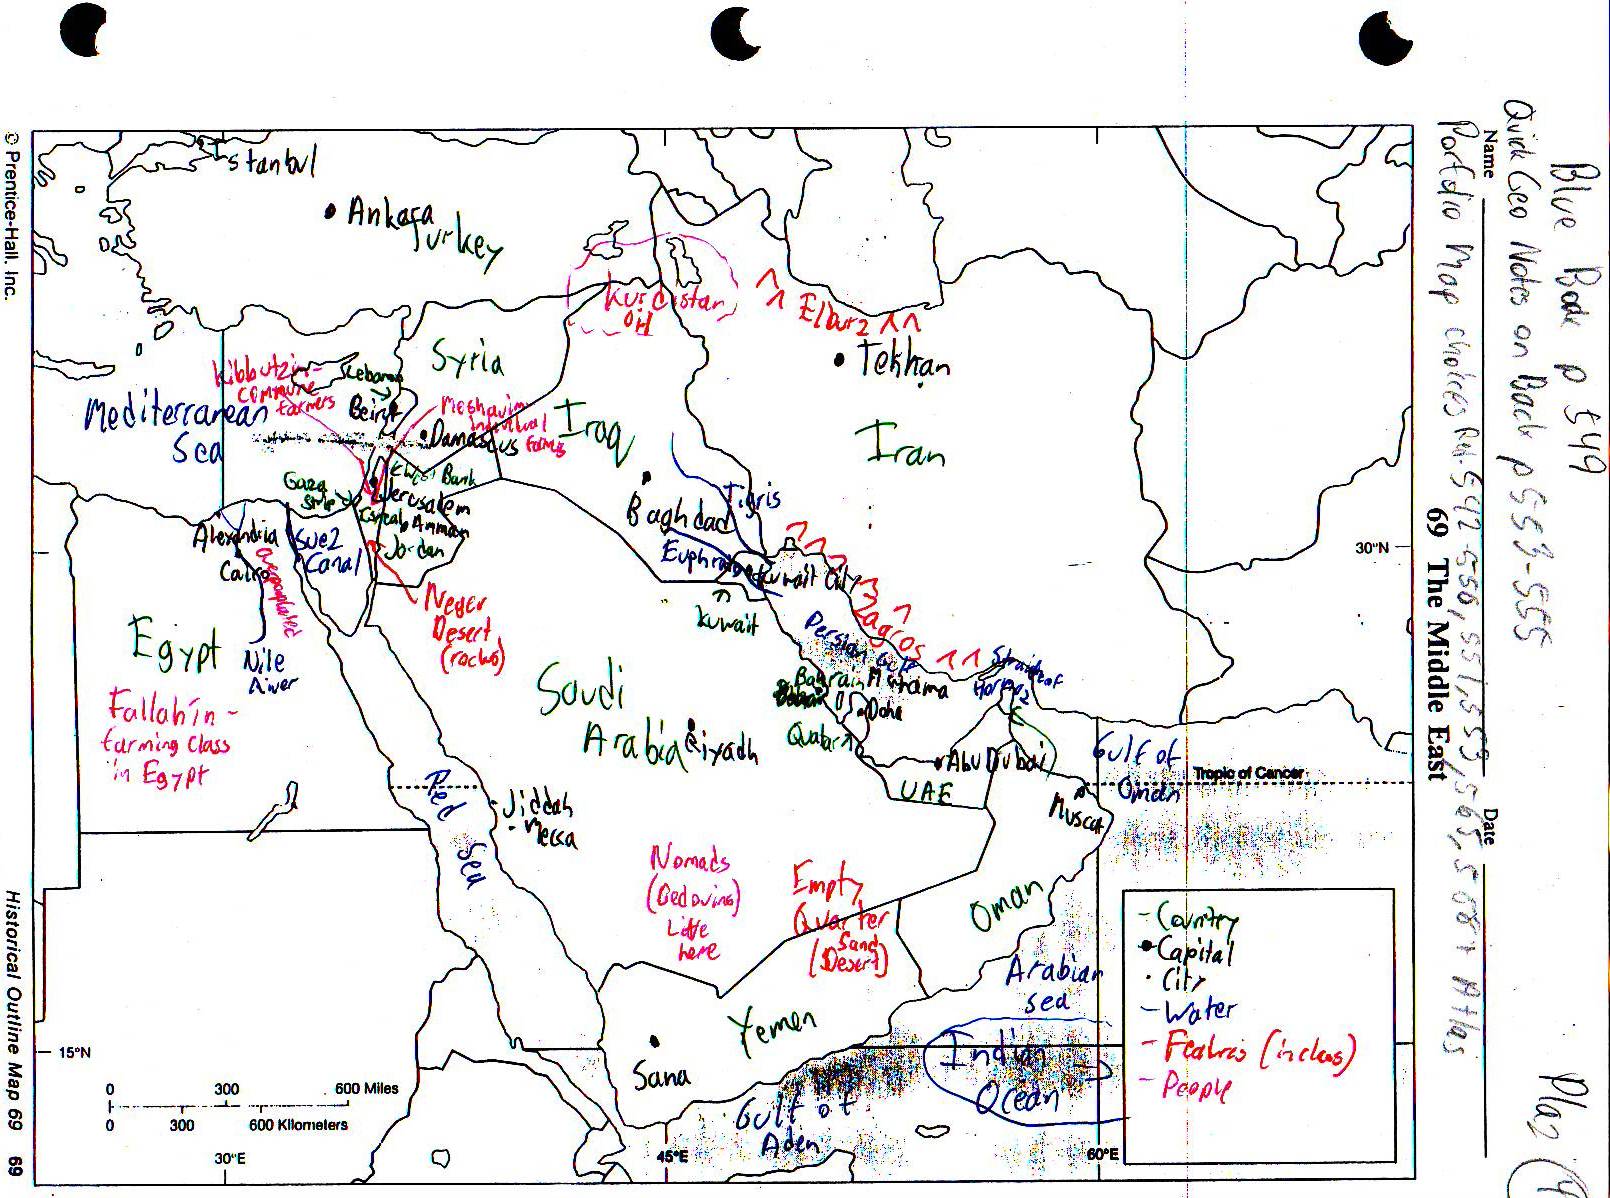 Blue Book p 549
Quick Geo Notes on Back p 553-555
Name
Date
Portfolio Map choices
69 The Middle East
Istanbul
Ankara
Turkey
Kurdistan
oil
Elburz
Tekhran
Syria
Kibbutzim-
commune
farmers
Lebanon
Beirut
Meshavim
individual
farms
Mediterranean
Sea
Damascus
Iraq
Iran
West Bank
Gaza
Strip
Jerusalem
Israel
Amman
Jordan
Baghdad
Tigris
Euphrates
Kuwait City
Kuwait
30°N
Alexandria
Suez
Canal
Cairo
overpopulated
Egypt
Nile
River
Neger
Desert
(rocks)
Zagros
Persian Gulf
Strait of
Hormuz
Bahrain
Manama
Doha
Quatar
Saudi
Arabia
Riyadh
Abu Dubai
UAE
Gulf of
Oman
Tropic of Cancer
Muscat
Fallahin -
farming class
in Egypt
Red
Sea
Jiddah
Mecca
Nomads
(Bedouins)
Live
here
Empty
Quarter
(Sand
Desert)
Oman
Arabian
sea
Yemen
Sana
Indian
Ocean
Gulf of
Aden
- Country
Capital
· City
- Water
- People
15°N
0 300 600 Miles
0 300 600 Kilometers
30°E
45°E
60°E
© Prentice-Hall, Inc.
Historical Outline Map 69 69